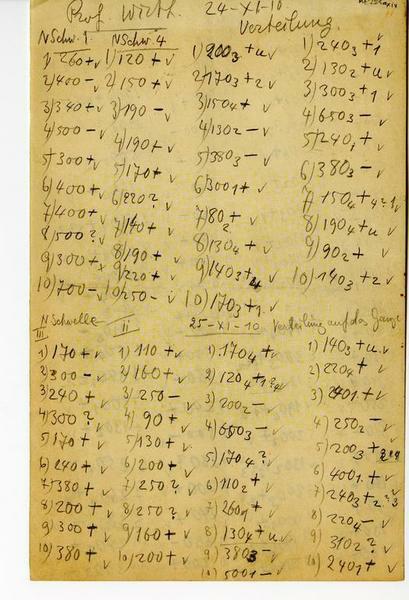 Prof. Wirth. 24-XI-10
Verteilung.
N Schw. 1. N Schw. 4
1) 260+v 1) 120+v 1) 2003+u v 1) 2403+1 v
2) 400-v 2) 150+v 2) 1703+2 v 2) 1302+u v
3) 340+v 3) 190-v 3) 1504+v 3) 3003+1 v
4) 500-v 4) 190+v 4) 1302-v 4) 6503-v
5) 300+v 5) 170+v 5) 3803-v
6) 400+v 6) 220? v 6) 3001+v 6) 3803-v
7) 400+v 7) 140+v 7) 802+v
8) 500? v 8) 190+v 8) 1304+v 8) 1904+u v
9) 300+ 9) 220+v 9) 902+v
10) 700-v 10) 250-v 10) 1703+1 v 10) 1403+2 v
N Schwelle 25-XI-10 Verteilung auf das Ganze
III II
1) 170+v 1) 110+v 1) 1704+v 1) 1403+u v
2) 300-v 2) 160+v 2) 2204+v
3) 240+v 3) 250-v 3) 2002-v 3) 2401+v
4) 300? v 4) 90+v 4) 6503-v 4) 2502-v
5) 170+v 5) 130+v 5) 1704? v
6) 240+v 6) 200+v 6) 1102+v 6) 4001+v
7) 380+v 7) 250? v 7) 2601+v
8) 200+v 8) 250? v 8) 1304+u v 8) 2204-v
9) 300+v 9) 160+v 9) 3803-v 9) 3102? v
10) 380+v 10) 200+v 10) 5001-v 10) 2401+v